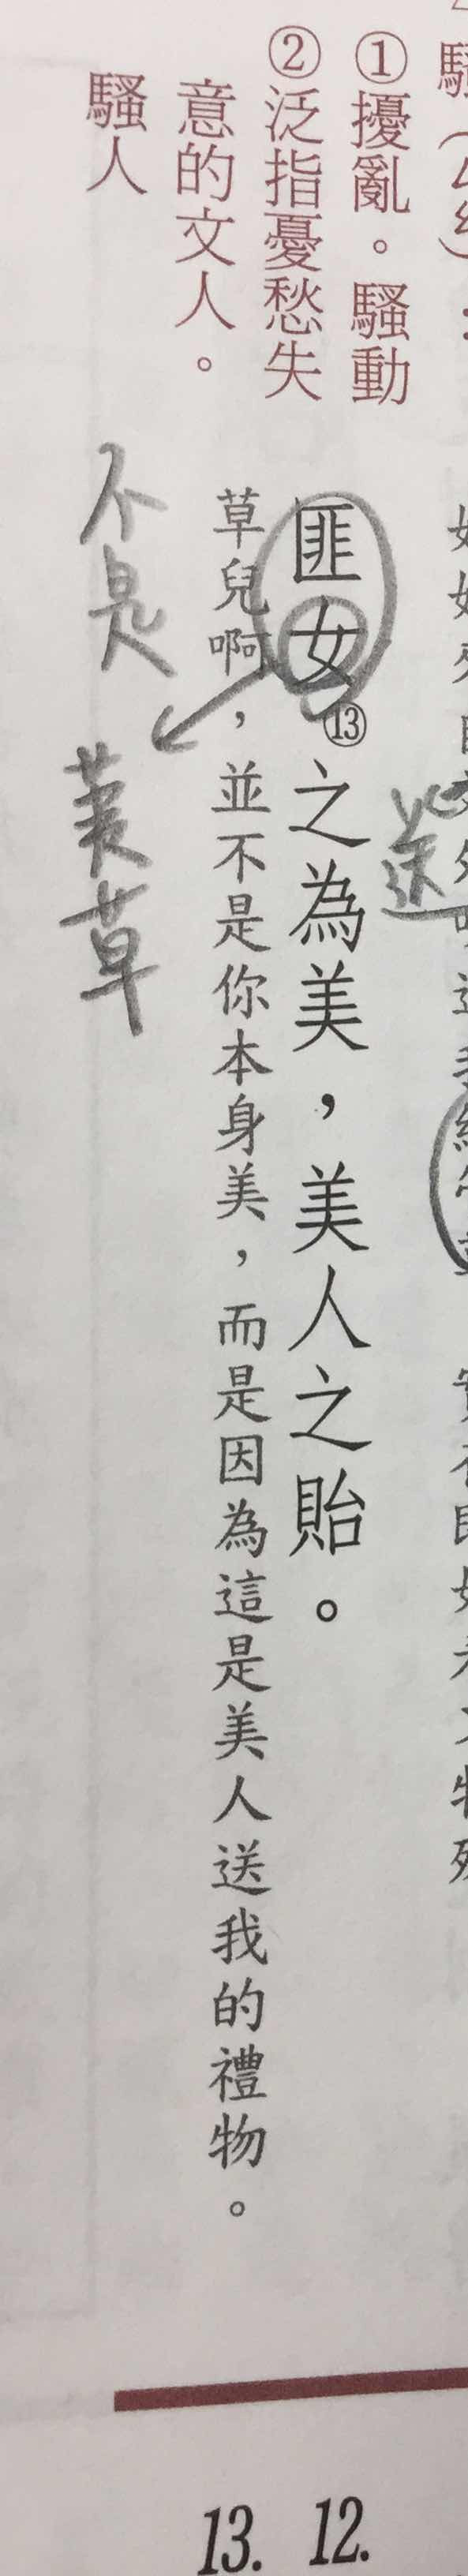 騷(ㄙㄠ)：
①擾亂。騷動
②泛指憂愁失
意的文人。
騷人
送
匪女⑬之為美，美人之貽。
草兒啊，並不是你本身美，而是因為這是美人送我的禮物。
不是
荑草
12.
13.